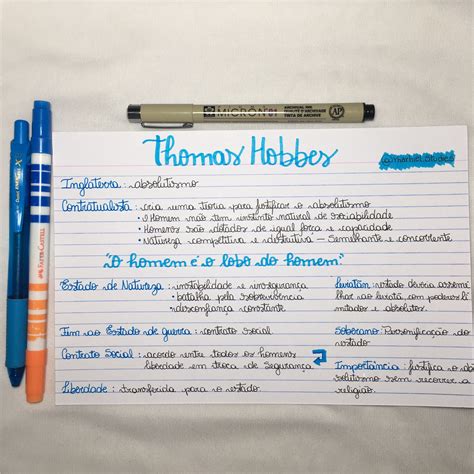 MICRON 01
Thomas Hobbes
Inglaterra : absolutismo
Contratualista : cria uma teoria para justificar o absolutismo
• o Homem não tem instinto natural de sociabilidade
• Homens são dotados de igual força e capacidade
• Natureza competitiva e destrutiva - Semelhante e concorrente
"O homem é o lobo do homem"
Estado de Natureza : instabilidade e insegurança
• batalha pela sobrevivência
• desconfiança constante
Fim ao Estado de guerra : contrato social
Contrato Social : acordo entre todos os homens
liberdade em troca de segurança
Liberdade : transferida para o estado.
estado deveria asseme
lhar ao leviatã com poderes ili
mitados e absolutos.
Soberano: Personificação do
estado
Importância: justifica o ab
solutismo sem recorrer a
religião.
FABER-CASTELL